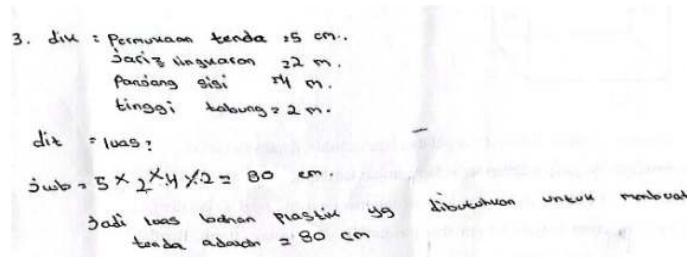 3. dik : Permukaan tenda = 5 cm.
Jari2 lingkaran = 2 m.
Panjang sisi = 4 m.
tinggi tabung = 2 m.
dit = luas?
jwb = 5 × 2 × 4 × 2 = 80 cm.
Jadi luas bahan plastik yg dibutuhkan untuk membuat
tenda adalah = 80 cm